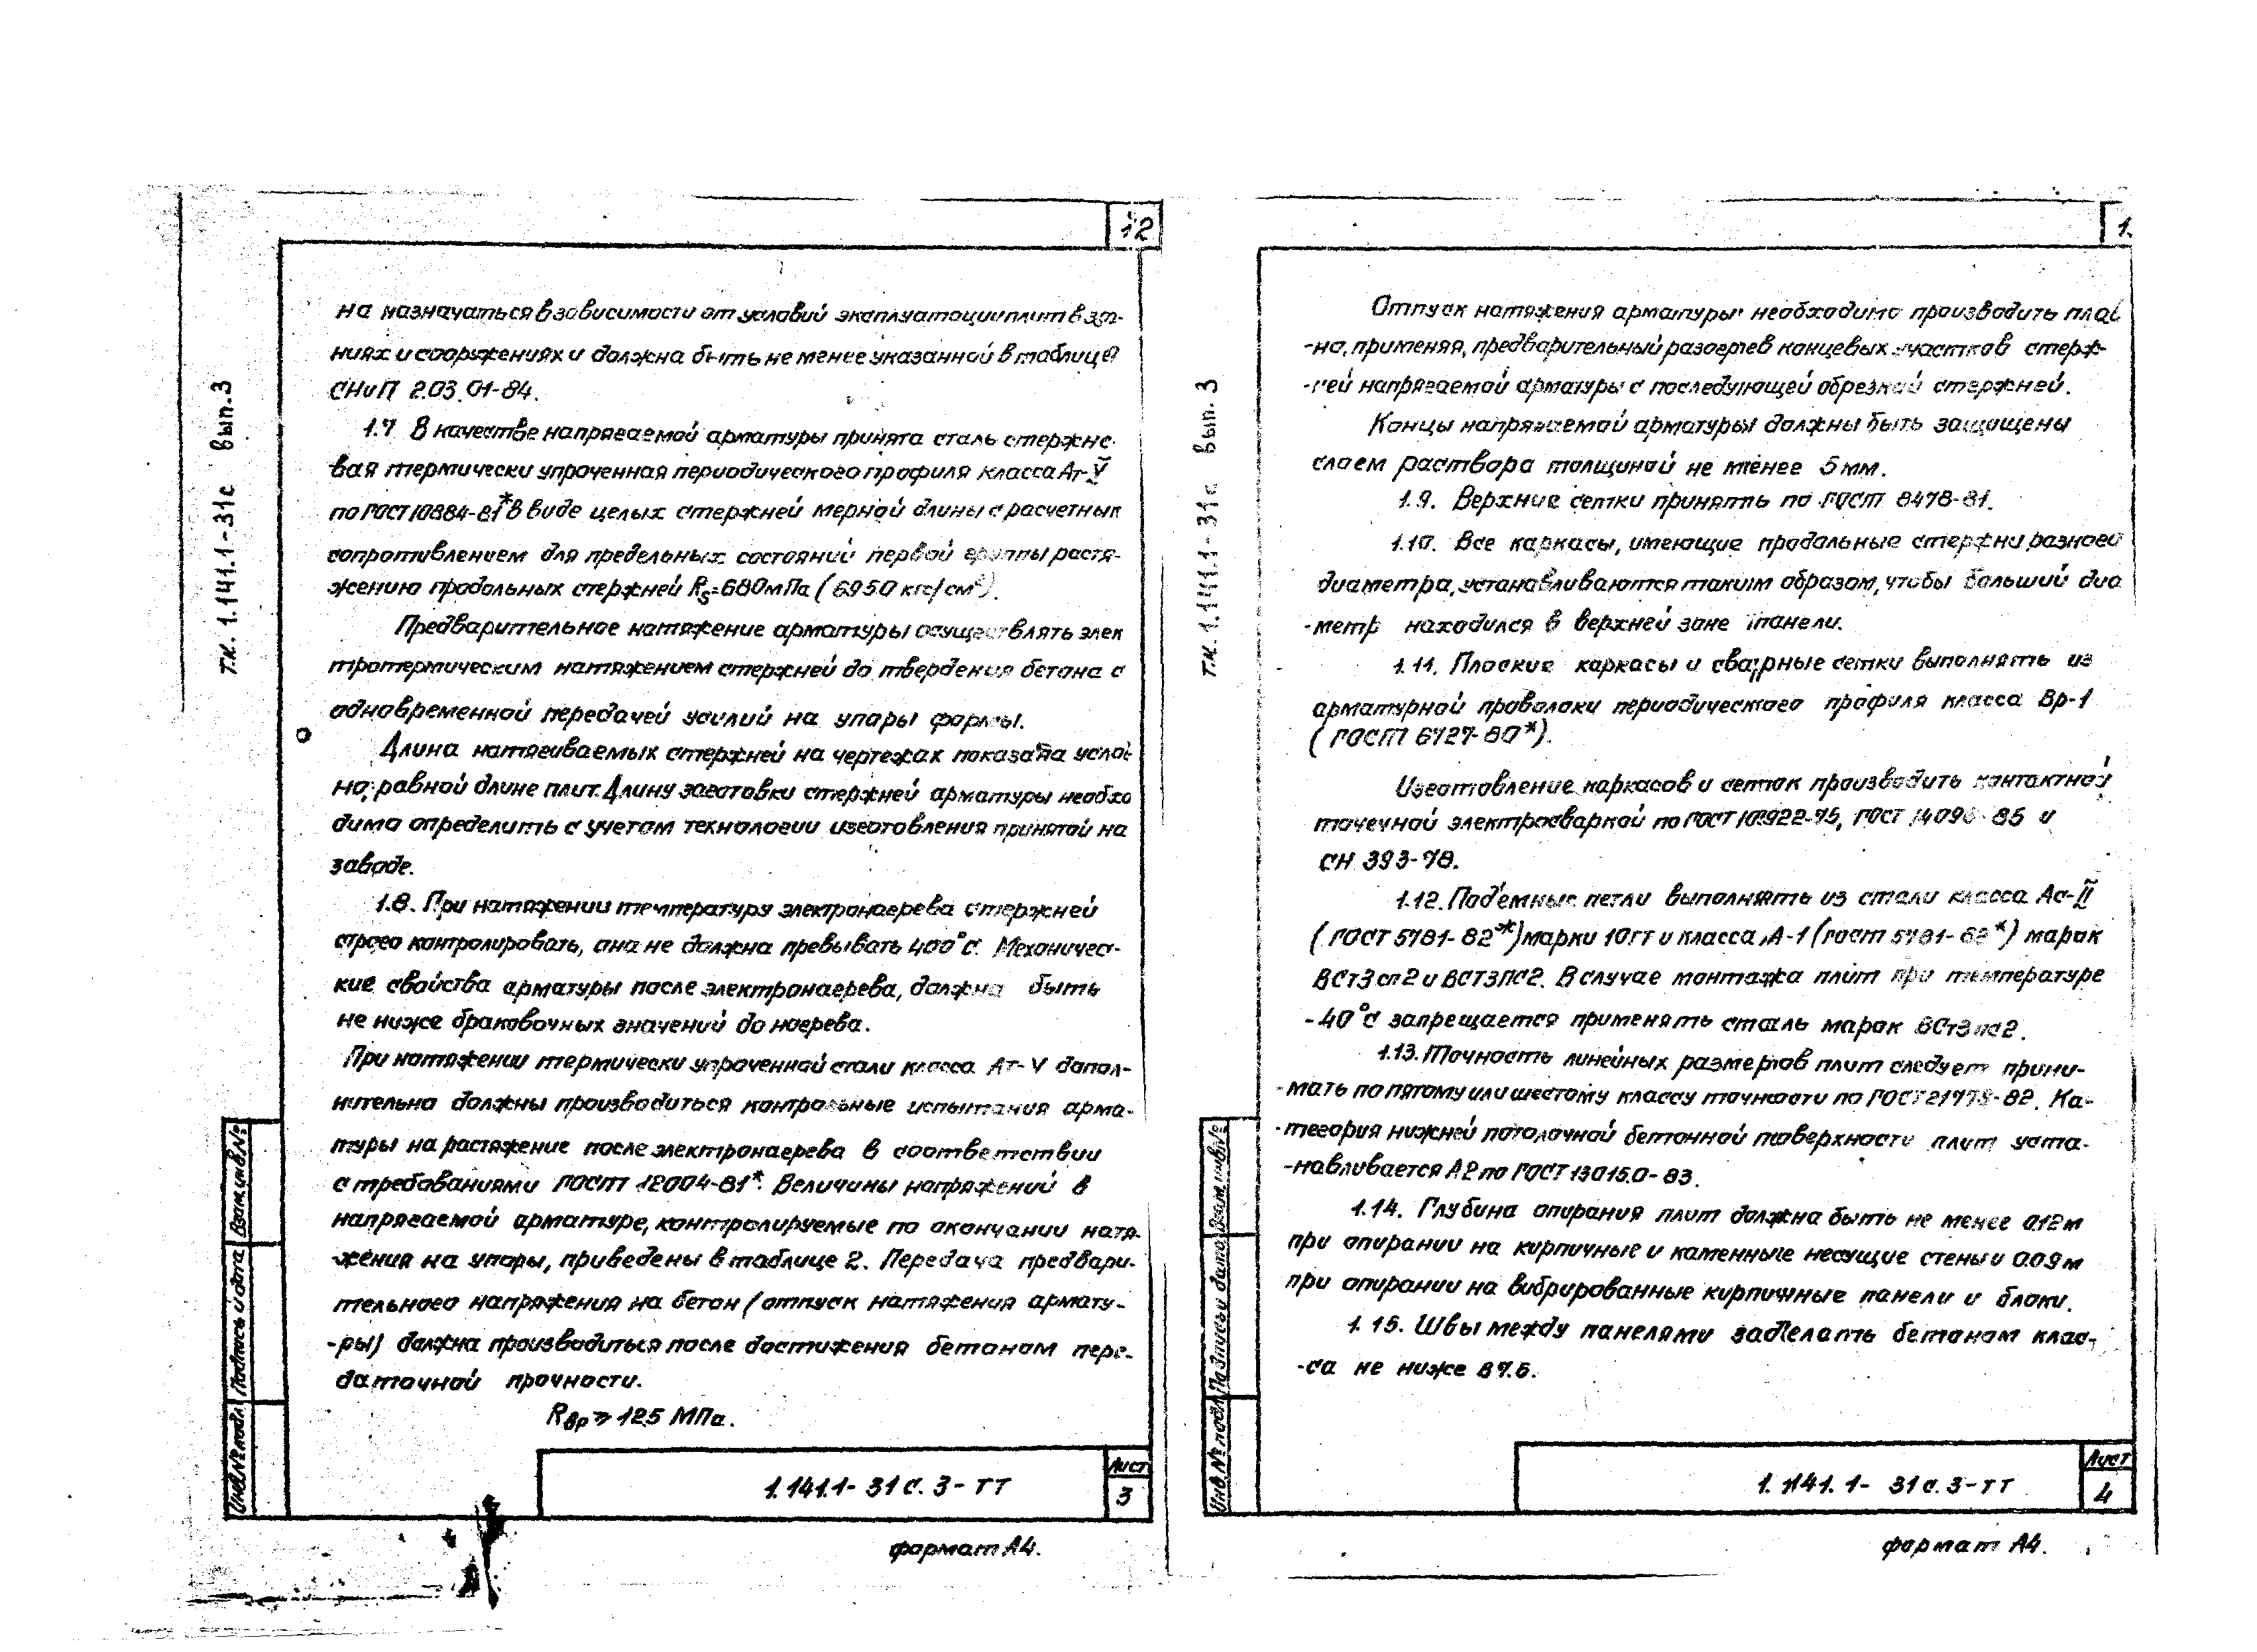 12
на назначаться в зависимости от условий эксплуатации плит в зда-
ниях и сооружениях и должна быть не менее указанной в таблице 9
СНиП 2.03.01-84.
1.7 В качестве напрягаемой арматуры принята сталь стержне-
вая термически упрочненная периодического профиля класса Ат-V
по ГОСТ 10884-81* в виде целых стержней мерной длины с расчетным
сопротивлением для предельных состояний первой группы растя-
жению продольных стержней Rs=680мПа (6950 кгс/см²).
Предварительное натяжение арматуры осуществлять элек
тротермическим натяжением стержней до твердения бетона с
одновременной передачей усилий на упоры формы.
Длина натягиваемых стержней на чертежах показана услов
но, равной длине плит. Длину заготовки стержней арматуры необхо
димо определить с учетом технологии изготовления принятой на
заводе.
1.8. При натяжении температуру электронагрева стержней
строго контролировать, она не должна превывать 400°С. Механичес-
кие свойства арматуры после электронагрева, должна быть
не ниже браковочных значений до нагрева.
При натяжении термически упрочненной стали класса Ат-V допол-
нительно должны производиться контрольные испытания арма-
туры на растяжение после электронагрева в соответствии
с требованиями ГОСТ 12004-81*. Величины напряжений в
напрягаемой арматуре, контролируемые по окончании натя-
-жения на упоры, приведены в таблице 2. Передача предвари-
тельного напряжения на бетон (отпуск натяжения армату-
-ры) должна производиться после достижения бетоном пере-
даточной прочности.
Rвр ≥ 12.5 МПа.
1.141.1- 31с. 3- ТТ
Лист
3
формат А4.
т.к. 1.141.1-31с вып.3
Взам инв№
Подпись и дата
Инв.№ подл
1.
Отпуск натяжения арматуры необходимо производить плав
-но, применяя, предварительный разогрев концевых участков стерж-
-ней напрягаемой арматуры с последующей обрезкой стержней.
Концы напрягаемой арматуры должны быть защищены
слоем раствора толщиной не менее 5 мм.
1.9. Верхние сетки принять по ГОСТ 8478-81.
1.10. Все каркасы, имеющие продольные стержни разного
диаметра, устанавливаются таким образом, чтобы больший диа
-метр находился в верхней зоне панели.
1.11. Плоские каркасы и сварные сетки выполнять из
арматурной проволоки периодического профиля класса Вр-1
(ГОСТ 6727-80*).
Изготовление каркасов и сеток производить контактной
точечной электросваркой по ГОСТ 10922-75, ГОСТ 14098-85 и
СН 393-78.
1.12. Под'емные петли выполнять из стали класса Ас-II
(ГОСТ 5781-82*) марки 10ГТ и класса А-1 (ГОСТ 5781-82*) марок
ВСт3сп2 и ВСТ3ПС2. В случае монтажа плит при температуре
-40°С запрещается применять сталь марок ВСт3пс2.
1.13. Точность линейных размеров плит следует прини-
-мать по пятому или шестому классу точности по ГОСТ 21779-82. Ка-
-тегория нижней потолочной бетонной поверхности плит уста-
-навливается А2 по ГОСТ 13015.0-83.
1.14. Глубина опирания плит должна быть не менее 0.12 м
при опирании на кирпичные и каменные несущие стены и 0.09 м
при опирании на вибрированные кирпичные панели и блоки.
1.15. Швы между панелями заделать бетоном клас-
-са не ниже В7.5.
1.141.1- 31с. 3- ТТ
Лист
4
формат А4.
т.к. 1.141.1-31с вып. 3
Взам инв№
Подпись и дата
Инв № подл